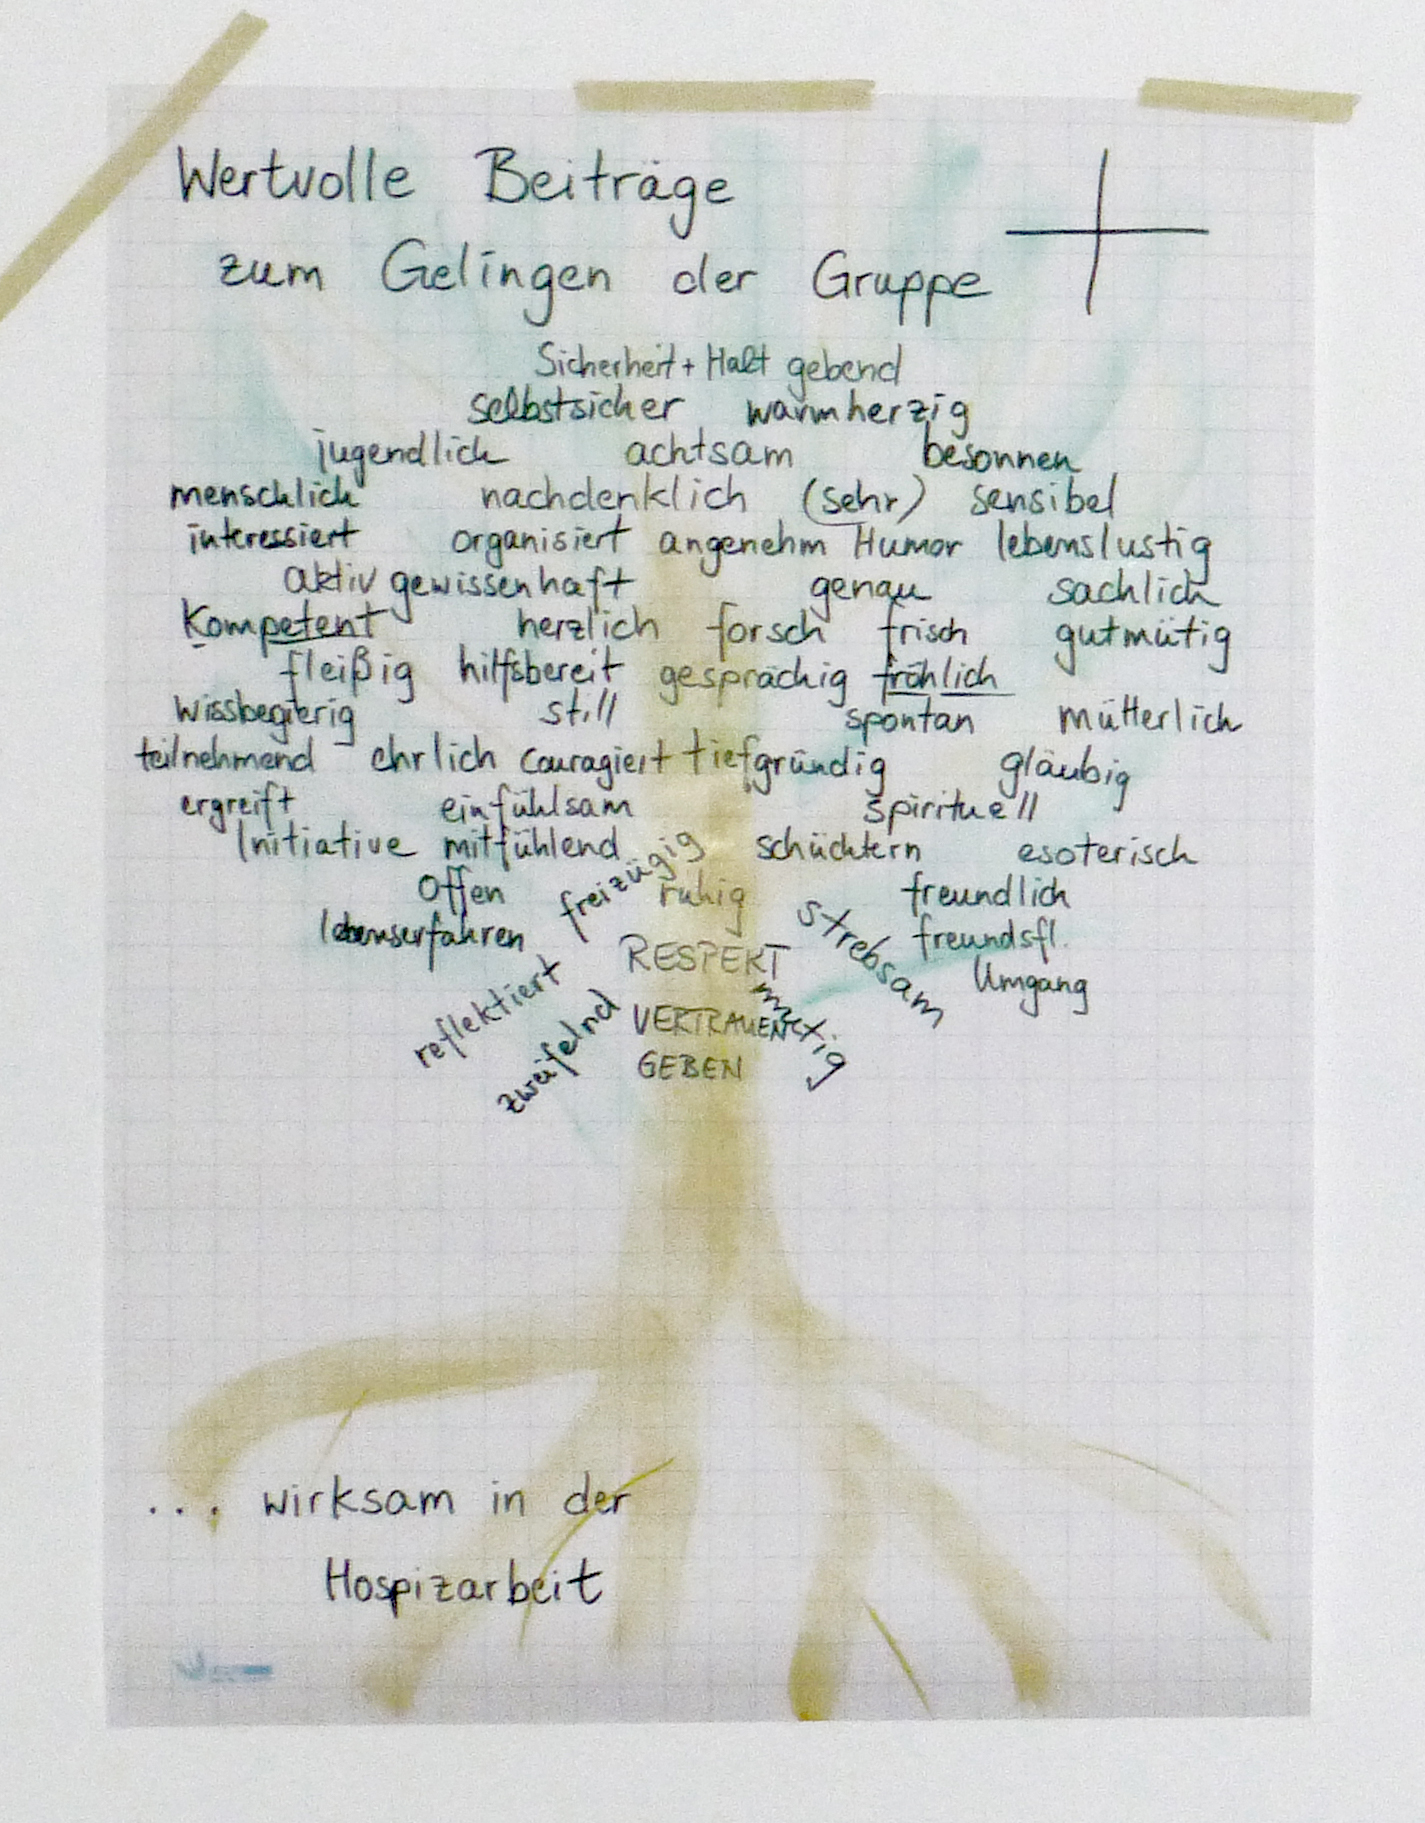 Wertvolle Beiträge
zum Gelingen der Gruppe
Sicherheit + Halt gebend
selbstsicher warmherzig
jugendlich achtsam besonnen
menschlich nachdenklich (sehr) sensibel
interessiert organisiert angenehm Humor lebenslustig
aktiv gewissenhaft genau sachlich
Kompetent herzlich forsch frisch gutmütig
fleißig hilfsbereit gesprächig fröhlich
wissbegierig still spontan mütterlich
teilnehmend ehrlich couragiert tiefgründig gläubig
ergreift einfühlsam spirituell
Initiative mitfühlend schüchtern esoterisch
Offen freizügig ruhig freundlich
lebenserfahren strebsam freundsfl.
RESPEKT Umgang
reflektiert zweifelnd VERTRAUEN mutig
GEBEN
... wirksam in der
Hospizarbeit